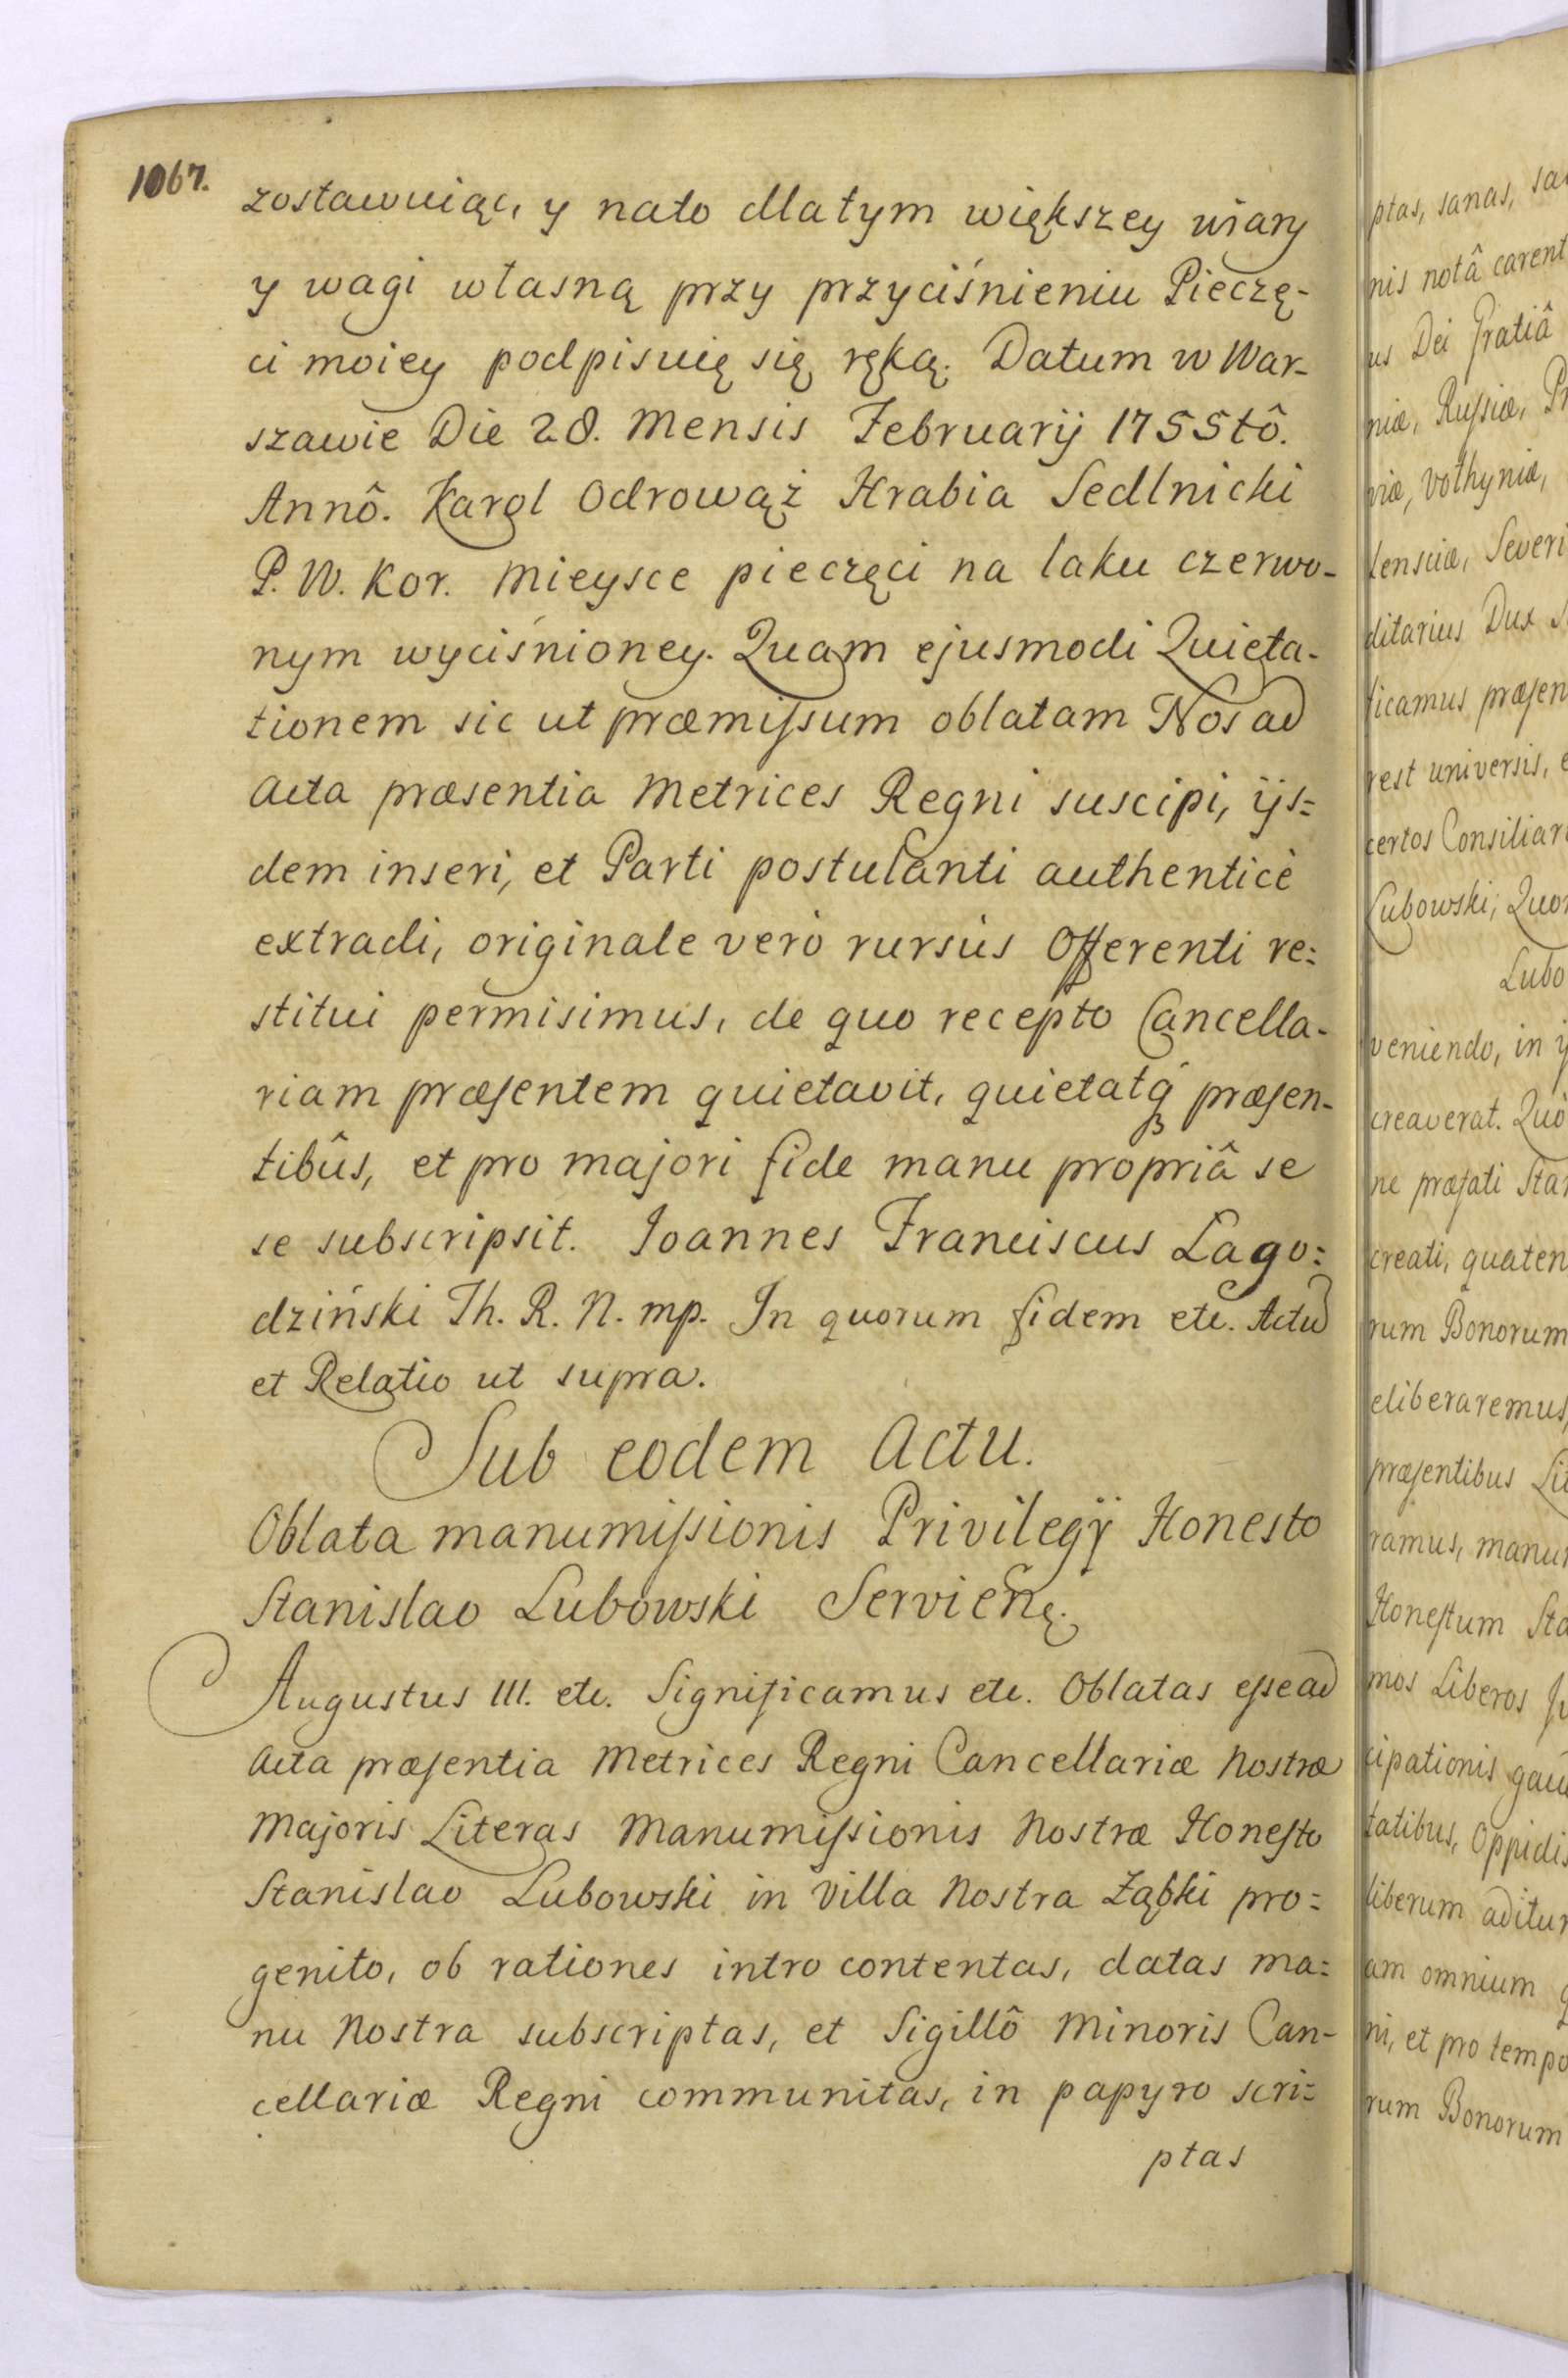 1067.
zostawuiąc, y nato dlatym większey wiary
y wagi własną przy przyciśnieniu Pieczę-
ci moiey podpisuię się ręką. Datum w War-
szawie Die 28. Mensis Februarij 1755tô.
Annô. Karol Odrowąż Hrabia Sedlnicki
P. W. Kor. Mieysce pieczęci na laku czerwo-
nym wyciśnioney. Quam ejusmodi Quieta-
tionem sic ut præmiſsum oblatam Nos ad
Acta præsentia Metrices Regni suscipi, ijs=
dem inseri, et Parti postulanti authenticè
extradi, originale verò rursùs Offerenti re=
stitui permisimus, de quo recepto Cancella-
riam præſentem quietavit, quietatq́ꝫ præſen-
tibûs, et pro majori fide manu propriâ se
se subscripsit. Joannes Franciscus Lago=
dziński Th. R. N. mp. In quorum fidem etc. Actũ
et Relatio ut supra.
Sub eodem Actu.
Oblata manumiſsionis Privilegÿ Honesto
Stanislao Lubowski Servieñ.
Augustus III. etc. Significamus etc. Oblatas eſse ad
Acta præſentia Metrices Regni Cancellariæ Nostræ
Majoris Literas Manumiſsionis Nostræ Honeſto
Stanislao Lubowski in Villa Nostra Ząbki pro=
genito, ob rationes intro contentas, datas ma=
nu Nostra subscriptas, et Sigillô Minoris Can-
cellariæ Regni communitas, in papyro scri=
ptas
ptas, sanas,
nis notâ carent
us Dei Gratiâ
niæ, Ruſsiæ,
viæ, Volhyniæ,
lensciæ, Severi
ditarius Dux
ficamus præſen
rest universis,
certos Consiliari
Lubowski, Quo
Lubo
veniendo, in
creaverat. Quò
ne præfati Sta
creati, quaten
rum Bonorum
eliberaremus,
præſentibus Li
ramus, manu
Honeſtum Sta
mos Liberos
cipationis gau
tatibus, Oppidis
liberum aditu
am omnium
ni, et pro tempo
rum Bonorum